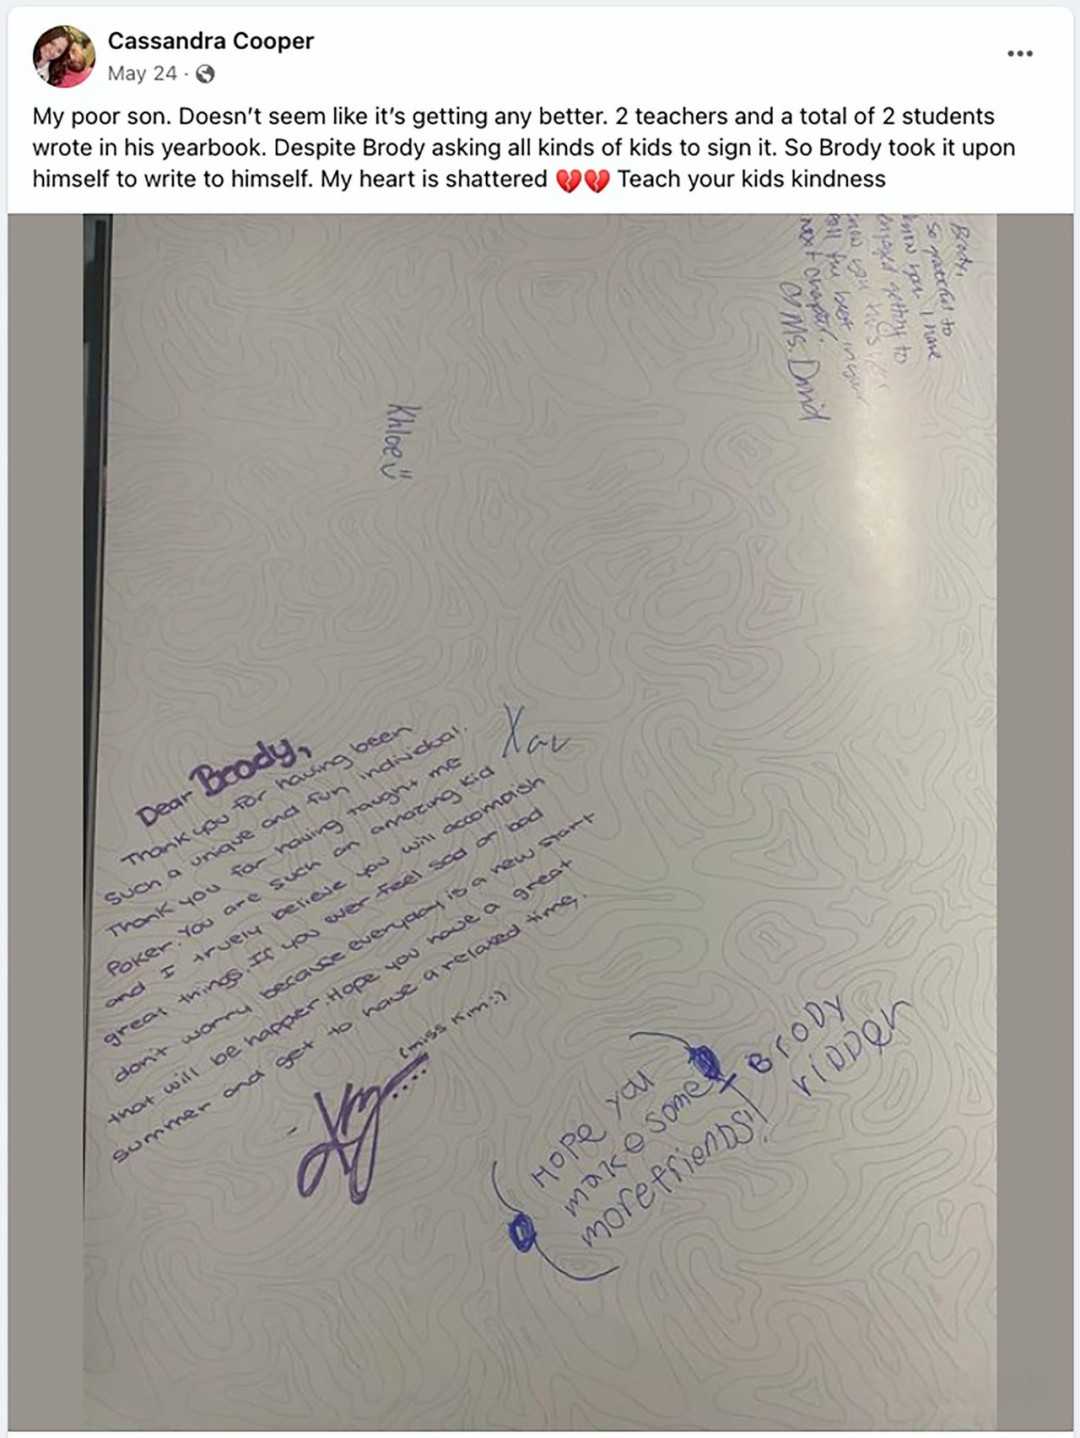 Cassandra Cooper
May 24 ·
My poor son. Doesn't seem like it's getting any better. 2 teachers and a total of 2 students
wrote in his yearbook. Despite Brody asking all kinds of kids to sign it. So Brody took it upon
himself to write to himself. My heart is shattered 💔💔 Teach your kids kindness
Brody,
So grateful to
know you. I have
enjoyed getting to
know you this year
all the best in your
next chapter.
Ms. David
Khloe
Xav
Dear Brody,
Thank you for having been
such a unique and fun individual.
Thank you for having taught me
Poker. You are such an amazing kid
and I truely believe you will accomplish
great things. If you ever feel sad or bad
don't worry because everyday is a new start
that will be happier. Hope you have a great
summer and get to have a relaxed time.
(miss Kim:)
HOPE you
make some
more friends!
- BrODy
riDDer